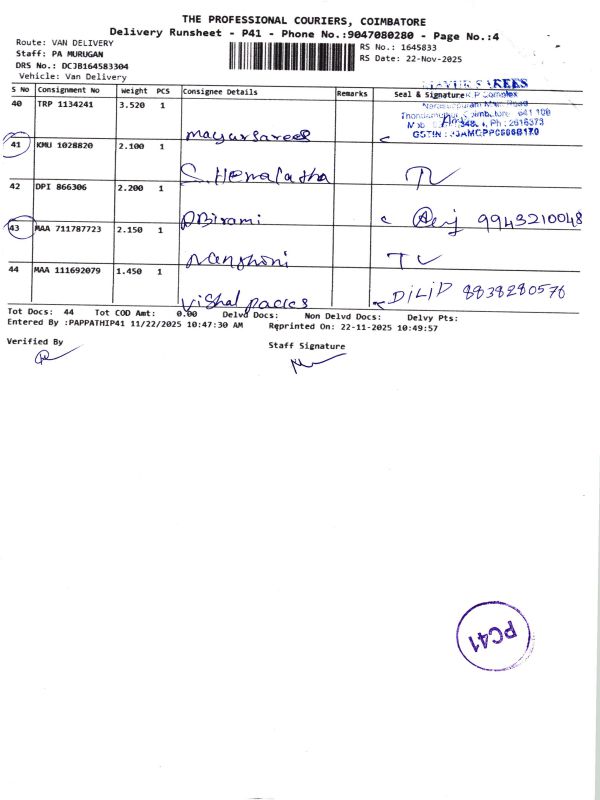 THE PROFESSIONAL COURIERS, COIMBATORE
Delivery Runsheet - P41 - Phone No.:9047080280 - Page No.:4
Route: VAN DELIVERY
Staff: PA MURUGAN
DRS No.: DCJB164583304
Vehicle: Van Delivery
RS No.: 1645833
RS Date: 22-Nov-2025
S No Consignment No Weight PCS Consignee Details Remarks Seal & Signature
SAREES
K.P Complex
Main Road
641 109
Ph : 2616373
GSTIN :
40 TRP 1134241 3.520 1 mayur sarees
41 KMU 1028820 2.100 1 S. Hemalatha
42 DPI 866306 2.200 1 Abirami 9943210048
43 MAA 711787723 2.150 1
44 MAA 111692079 1.450 1 Vishal packs DILIP 8838280576
Tot Docs: 44 Tot COD Amt: 0.00 Delvd Docs: Non Delvd Docs: Delvy Pts:
Entered By :PAPPATHIP41 11/22/2025 10:47:30 AM Reprinted On: 22-11-2025 10:49:57
Verified By
Staff Signature
PC41